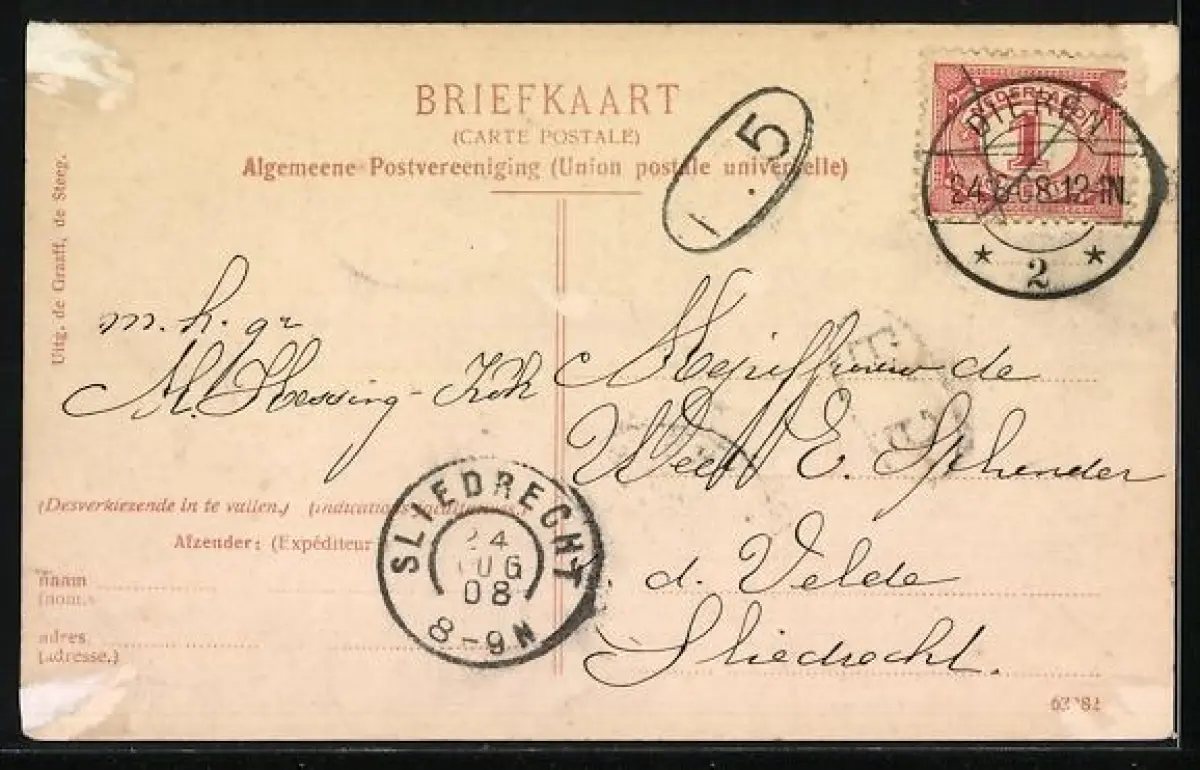 BRIEFKAART
(CARTE POSTALE)
Algemeene Postvereeniging (Union postale universelle)
Uitg. de Graaff, de Steeg.
5
NEDERLAND
1
DIEREN
24.8.08.12-1N.
2
m. h. gr
M. Hessing - Kok
Mejuffrouw de
Wed E.
v. d. Velde
Sliedrecht.
SLIEDRECHT
24
AUG
08
8-9N
(Desverkiezende in te vullen.)
Afzender: (Expéditeur
naam
(nom.
adres.
(adresse.)